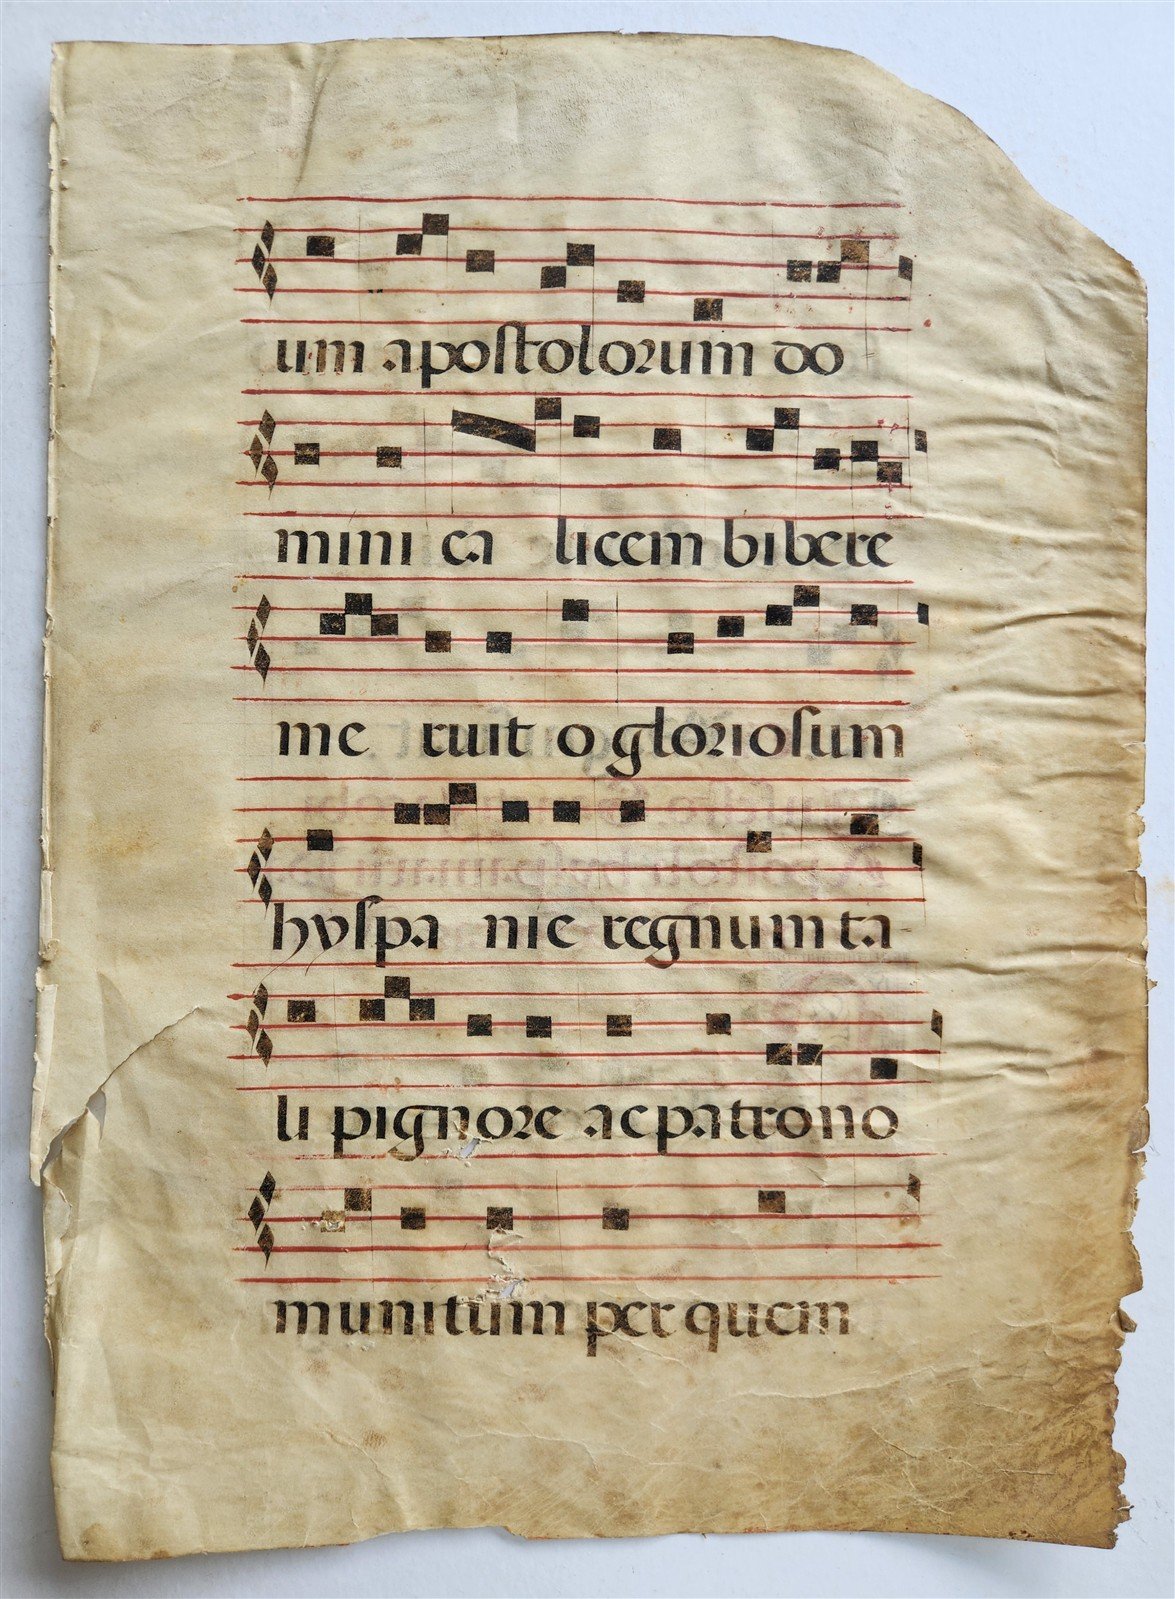 um apostolorum do
mini ca licem bibere
me ruit o gloriosum
hyspa nie regnum ta
li pignore ac patrono
munitum per quem